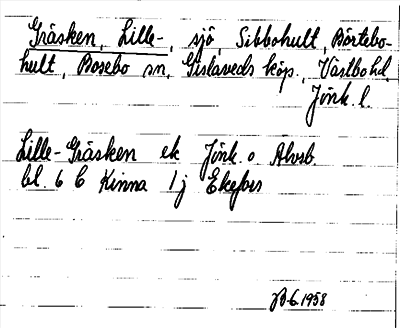 Gräsken, Lille-, sjö, Sibbohult, Börtebo-
hult, Bosebo sn, Gislaveds köp., Västbo hd
Jönk. l.
Lille-Gräsken ek Jönk. o. Älvsb
bl. 6 C Kinna 1 j Ekefors
6.1958